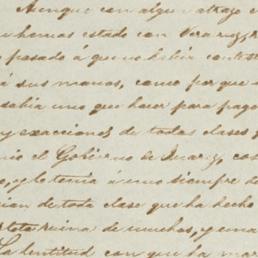 Aunque con algun atrazo e
hemos estado con Vera
pasado á que no había contest
á sus manos, como por que
sabia uno que hacer para pago
y exacciones de todas clases y
el Gobierno de Juarez, cos
, y lo tenia á uno siempre de
de toda clase que ha hecho
ruina de muchos, y una
La lentitud con que la mar